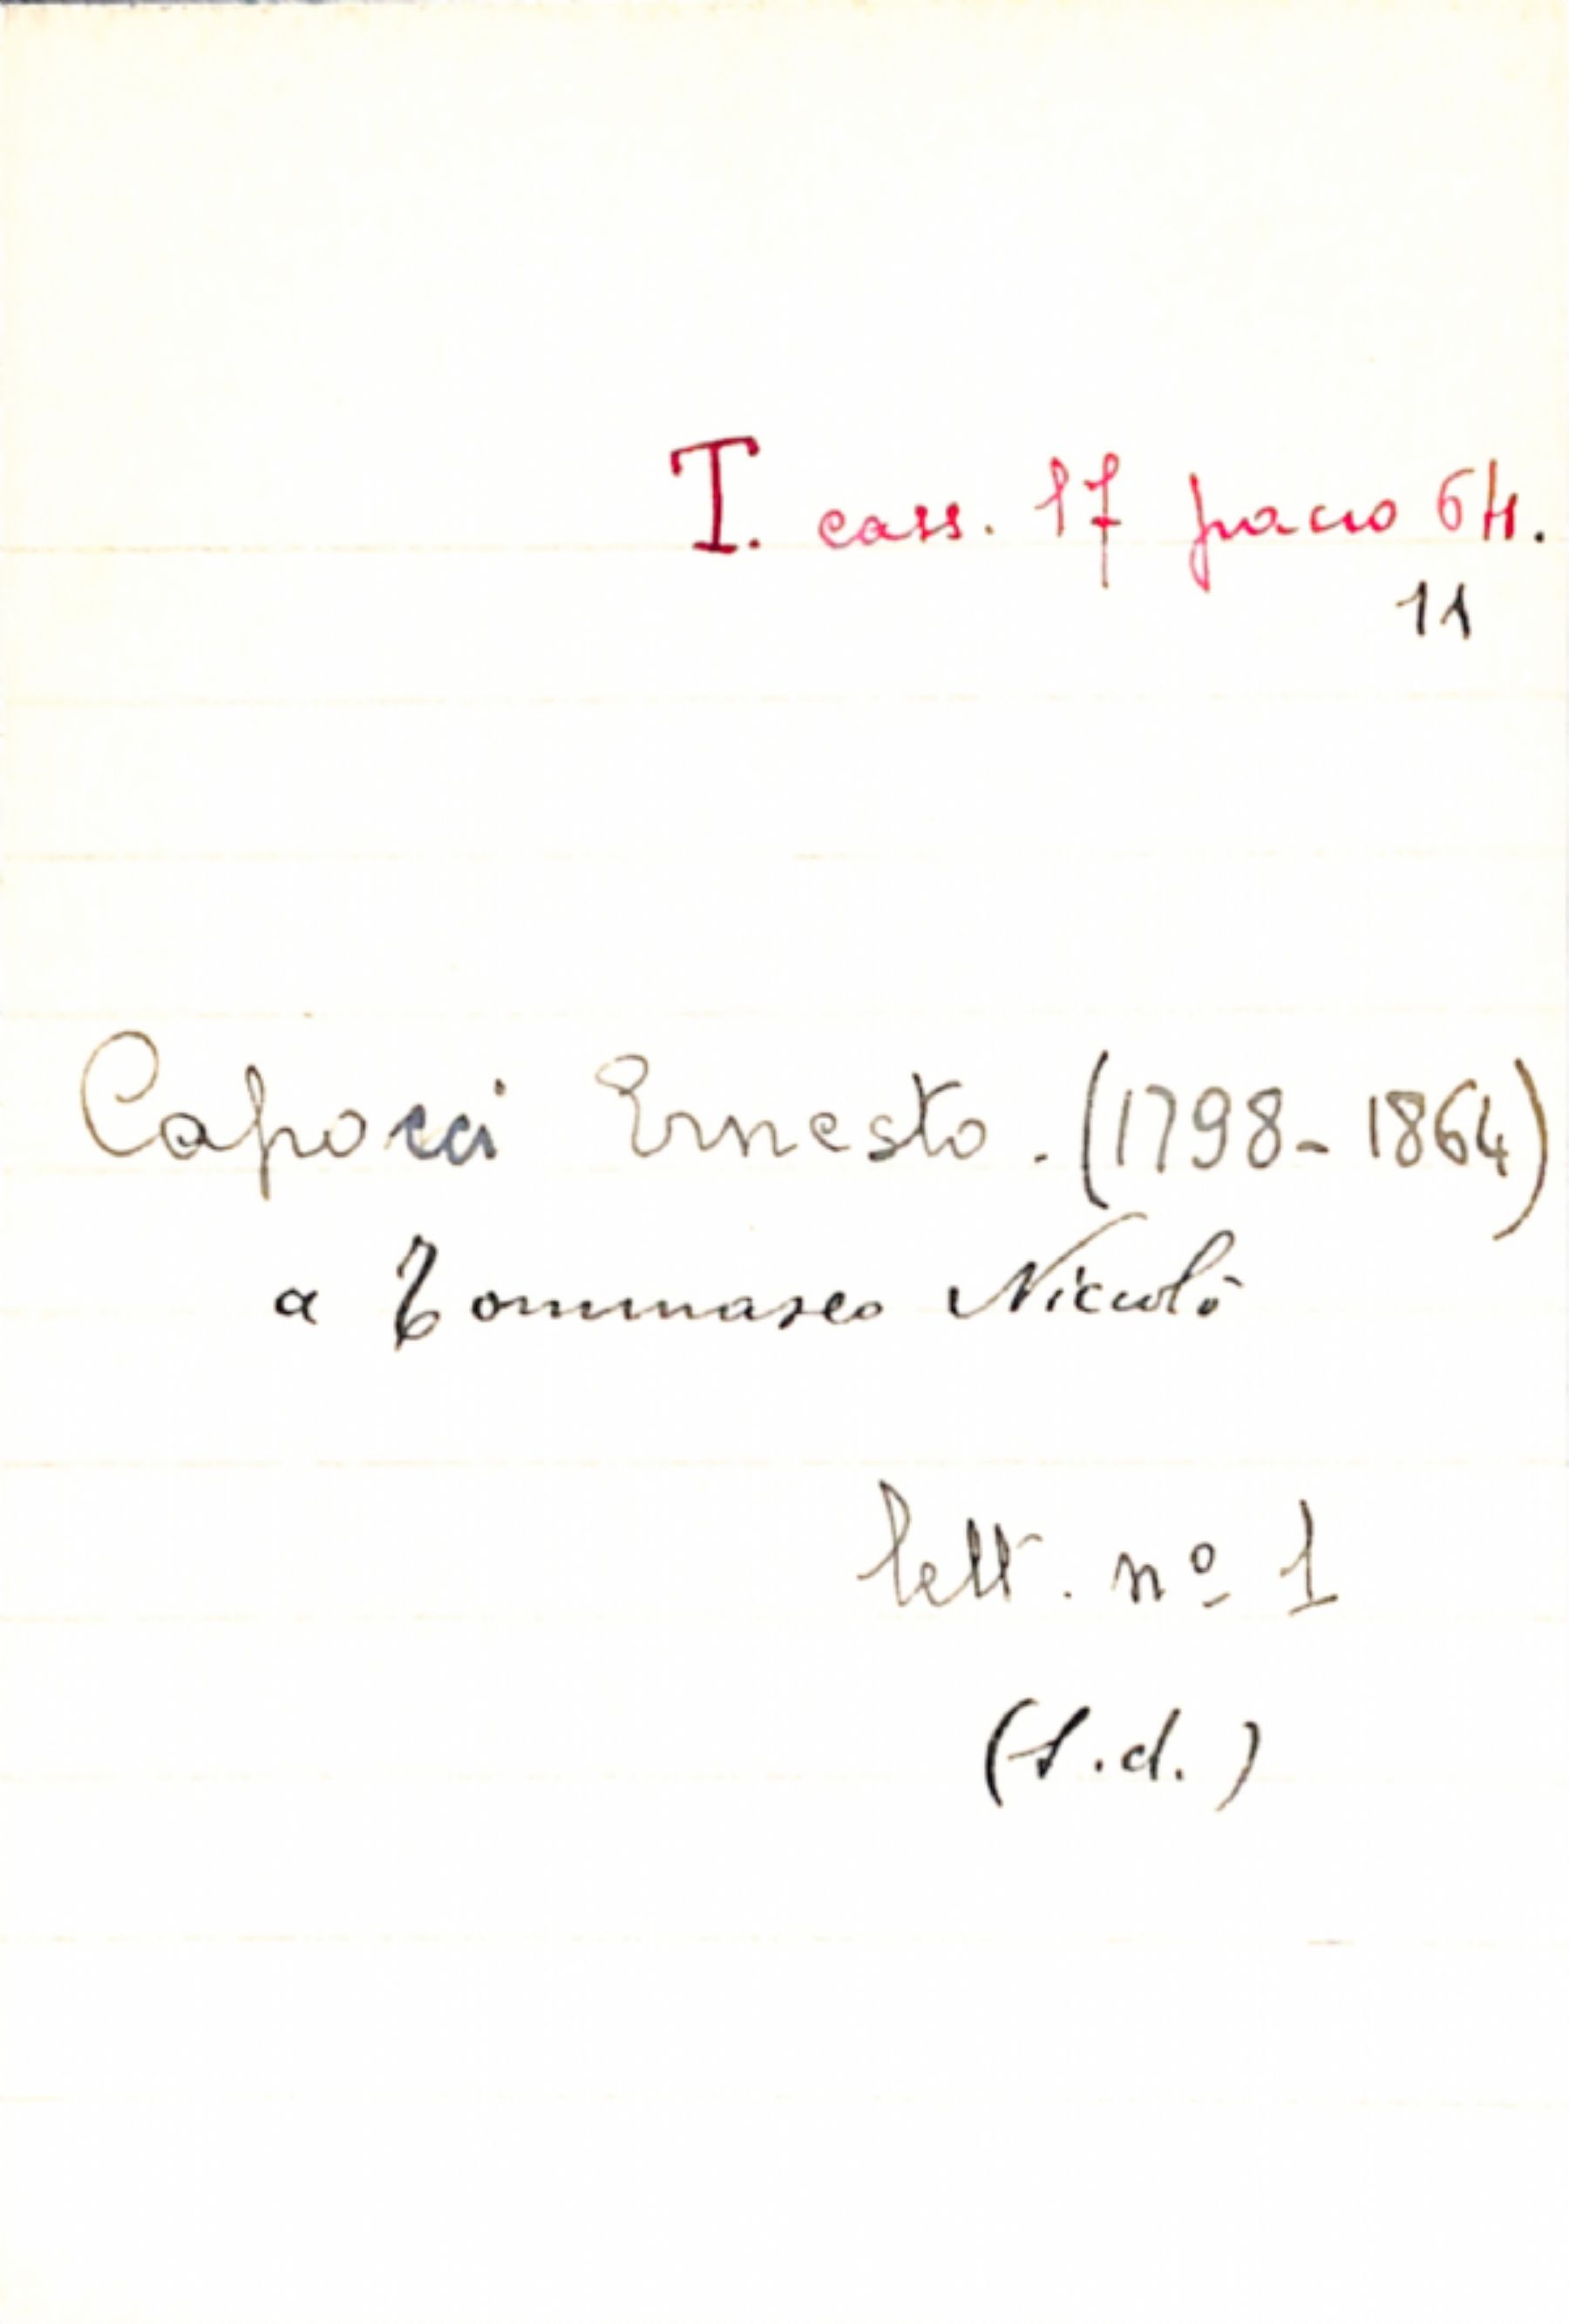 T. cass. 17 pacco 64.
11
Capocci Ernesto. (1798-1864)
a Tommaseo Niccolò
lett. nº 1
(s.d.)